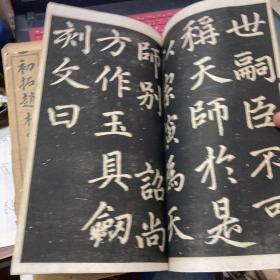 世嗣臣不可
稱天師於是
為天
師別 詔尚
方作玉具劔
刻文曰
初拓趙